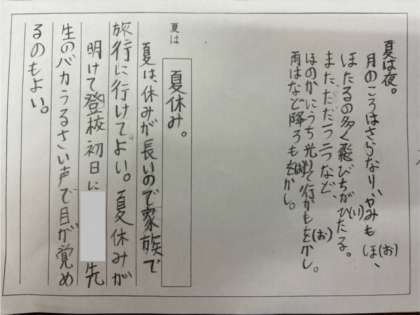 夏は夜。
月のころはさらなり、やみもほ(お)
ほたるの多く飛びちがひ(い)たる。
また、ただ一つ二つなど、
ほのかにうち光りて行くもを(お)かし。
雨など降るもをかし。
夏は
夏休み。
夏は、休みが長いので家族で
旅行に行けてよい。夏休みが
明けて登校初日に 先
生のバカうるさい声で目が覚め
るのもよい。